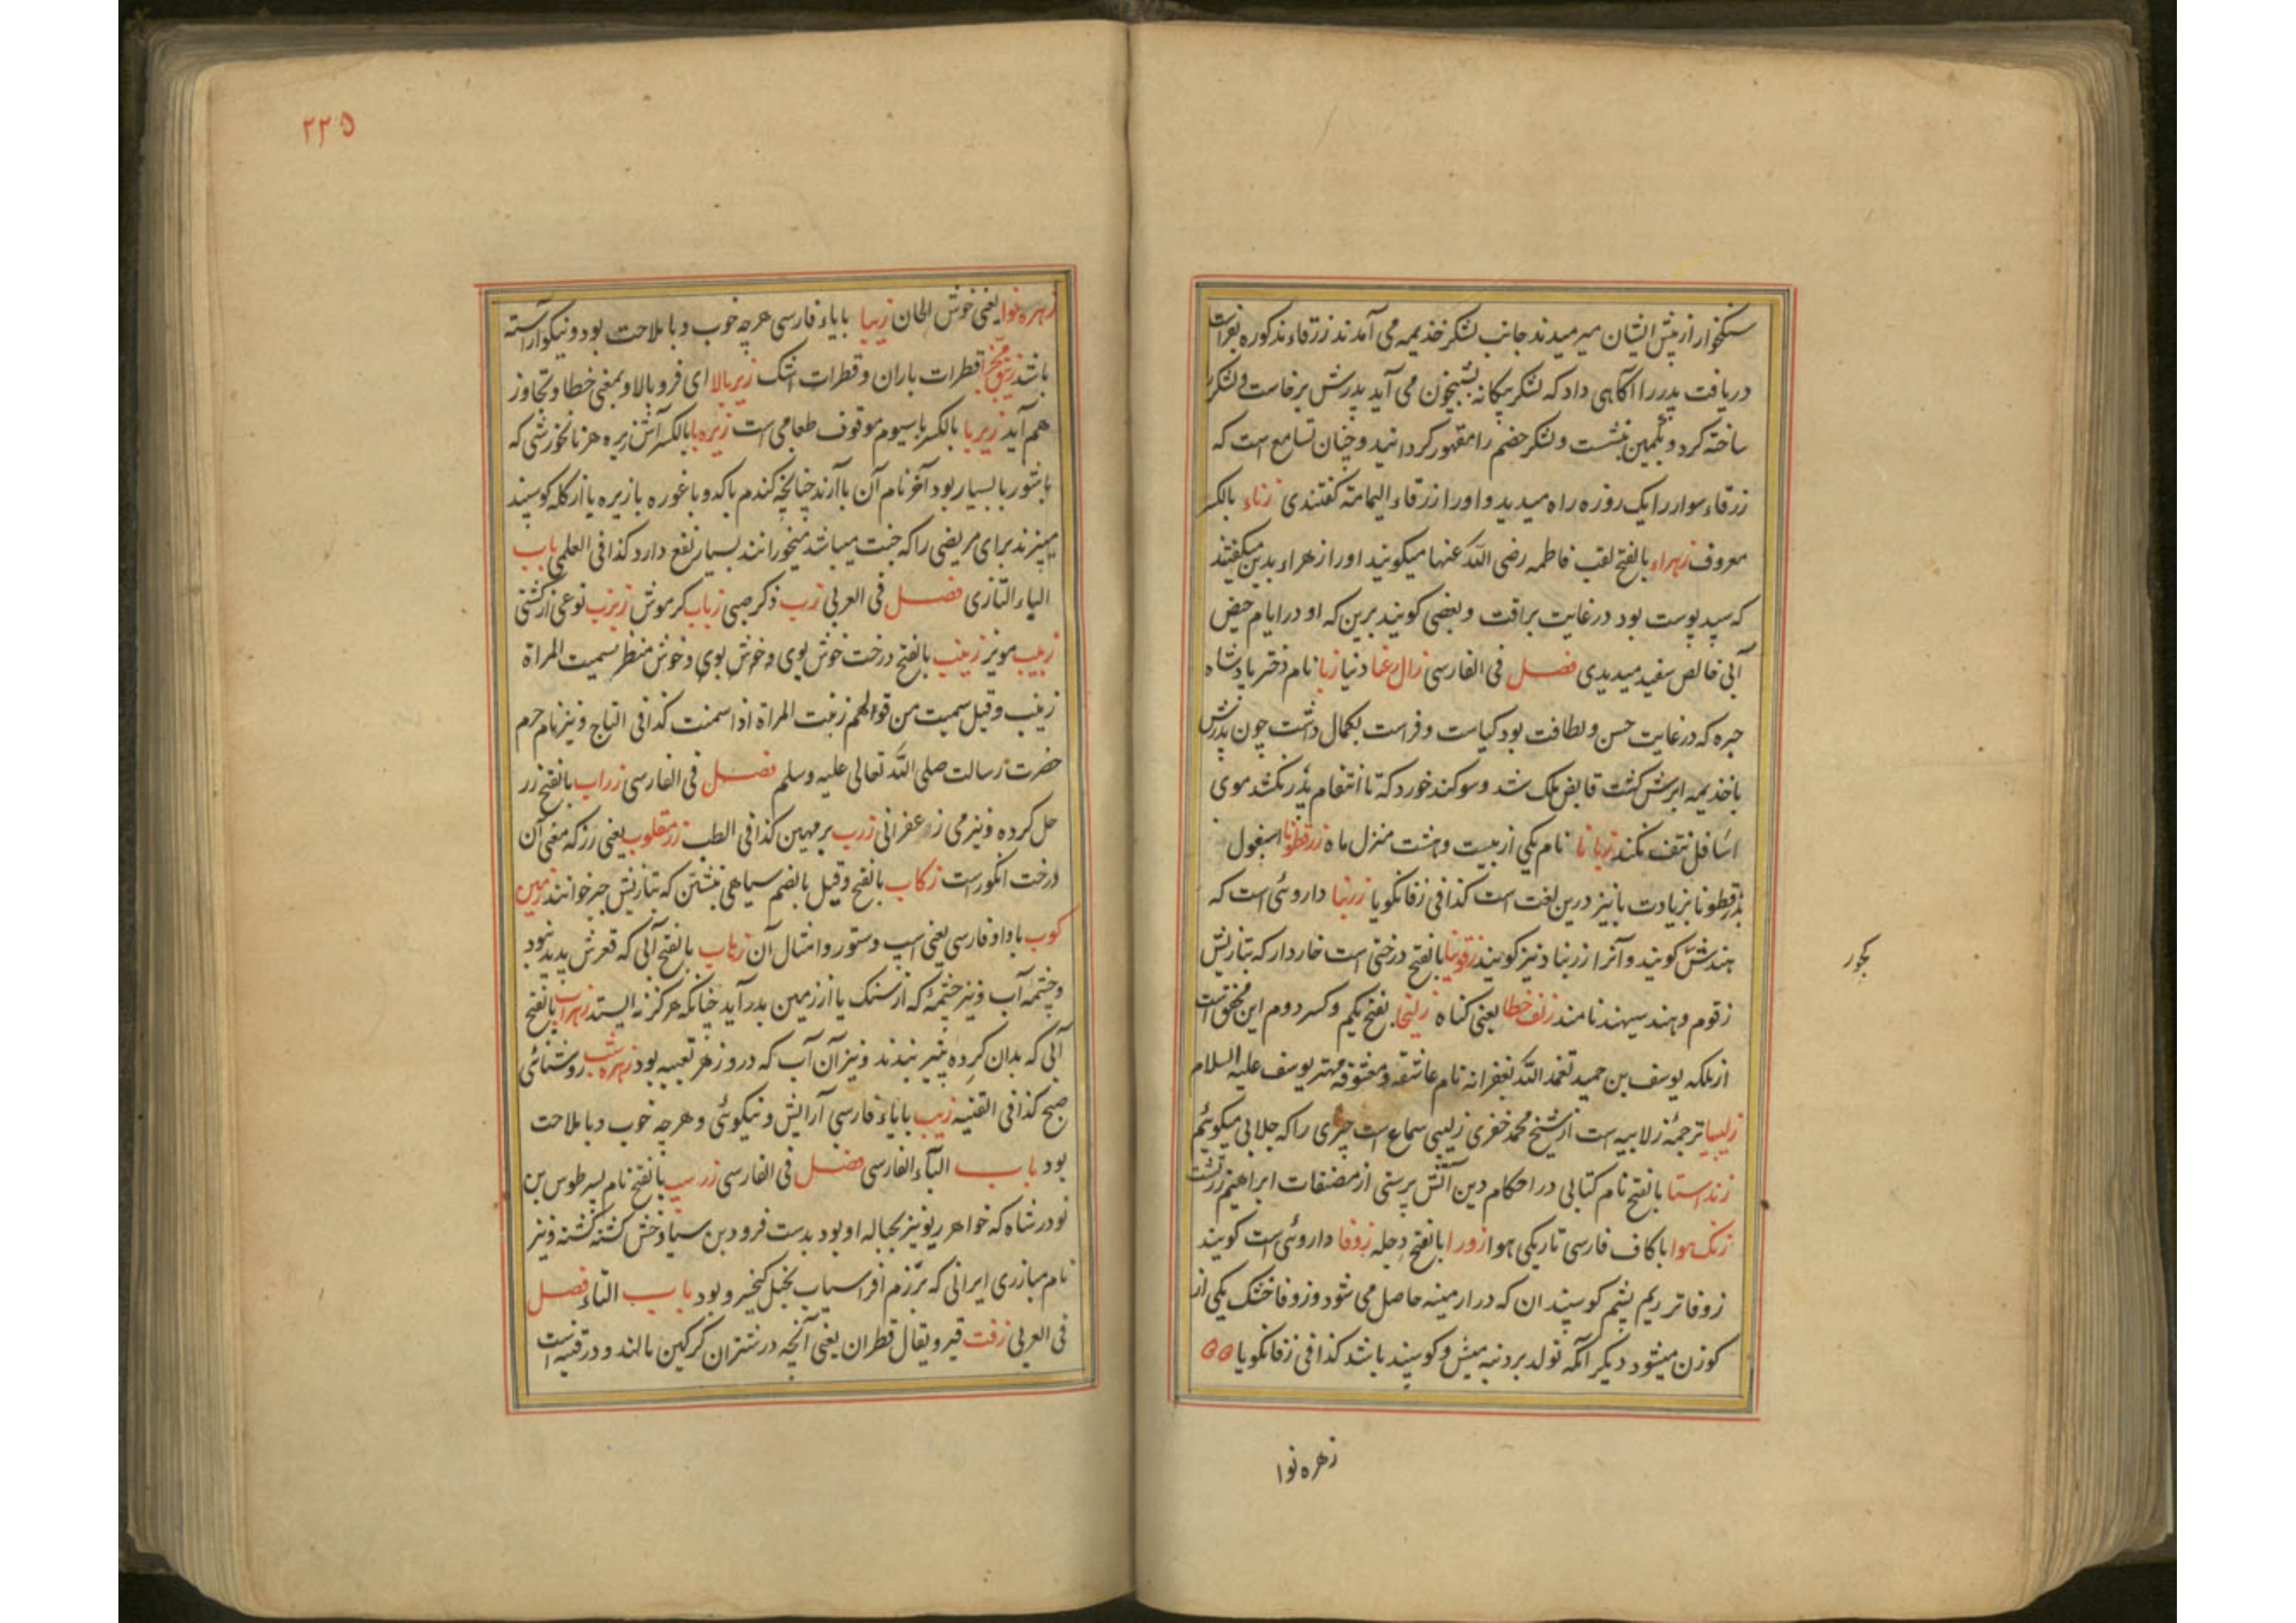 سنکخوار از پیش ایشان میرمیدند جانب لشکر خذیمه می آمدند زرقاء مذکوره بفراست
دریافت پدر را آکاهی داد که لشکر بیکانه بشبیخون می آید پدرش برخاست و لشکر
ساخته کرد و بکمین بنشست و لشکر خصم را مقهور کردانید و چنان تسامع است که
زرقاء سوار را یک روزه راه میدید و او را زرقاء الیمامة کفتندی زناء بالکسر
معروف زهراء بالفتح لقب فاطمه رضی الله عنها میکویند او را زهراء بدین میکفتند
که سپید پوست بود در غایت براقت و بعضی کویند برین که او در ایام حیض
آبی خالص سفید میدیدی فصل فی الفارسی زال رعنا دنیا زبا نام دختر پادشاه
حیره که در غایت حسن و لطافت بود کیاست و فراست بکمال داشت چون پدرش
با خذیمه ابرش کشت قابض ملک شد و سوکند خورد که تا انتقام پدر نکشد موی
اسافل نتف نکند زبانا نام یکی از بیست و هشت منزل ماه زرقطونا اسپغول
بزرقطونا بزیادت با نیز درین لغت است کذا فی زفانکویا زرنبا داروئی است که
هندش کویند و آنرا زرنباد نیز کویند زقونیا بالفتح درختی است خاردار که بتازیش
زقوم و هند سیهند نامند زلف خطا یعنی کناه زلیخا بفتح یکم و کسر دوم این محقق است
از ملکه یوسف بن حمید تغمد الله بغفرانه نام عاشقه و معشوقه مهتر یوسف علیه السلام
زلیبیا ترجمهٔ زلابیه است از شیخ محمد خفری زلیبی سماع است چیزی را که جلابی میکوئیم
زند استا بالفتح نام کتابی در احکام دین آتش پرستی از مصنفات ابراهیم زرتشت
زنک هوا با کاف فارسی تاریکی هوا زورا بالفتح دجله زوفا داروئی است کویند
زوفا تر ریم پشم کوسپندان که در ارمینه حاصل می شود و زوفا خشک یکی از
کوزن میشود دیکر آنکه تولد بر دنبه میش و کوسپند باشد کذا فی زفانکویا
زهره نوا
۲۲۵
زهره نوا یعنی خوش الحان زیبا بایاء فارسی هرچه خوب و با ملاحت بود و نیکو آراسته
باشد قطرات باران و قطرات اشک زیر بالا ای فرو بالا و بمعنی خطا و تجاوز
هم آید زیربا بالکسر با سیوم موقوف طعامی است زیره با بالکسر آش زیره هر نانخورشی که
با شوربا بسیار بود آخر نام آن با آرند چنانچه کندم با کدو با غوره با زیره با از کله کوسپند
میپزند برای مریضی را که میباشد میخورانند بسیار نفع دارد کذا فی العلمی باب
الباء التازی فصل فی العربی زب ذکر صبی زباب کرموش زبزب نوعی از کشتی
زبیب مویز زینب بالفتح درخت خوش بوی و خوش بوی و خوش منظر سمیت المراة
زینب و قیل سمیت من قولهم زنبت المراة اذا سمنت کذا فی التاج و نیز نام حرم
حضرت رسالت صلی الله تعالی علیه وسلم فصل فی الفارسی زراب بالفتح زر
حل کرده و نیز می زعفرانی زرب برمهین کذا فی الطب زر مقلوب یعنی رز که معنی آن
درخت انکور است زکاب بالفتح و قیل بالضم سیاهی نبشتن که بتازیش حبر خوانند زمین
کوب با واو فارسی یعنی اسپ و ستور و امثال آن زهاب بالفتح آبی که قعرش پدید نبود
و چشمهٔ آب و نیز چشمهٔ که از سنک یا از زمین بدر آید چنانکه هرکز نه ایستد زهراب بالفتح
آبی که بدان کرده پنیر بندند و نیز آن آب که درو زهر تعبیه بود زهره شب روشنائی
صبح کذا فی القنیه زیب بایاء فارسی آرایش و نیکوئی و هرچه خوب و با ملاحت
بود باب الباء الفارسی فصل فی الفارسی زرسپ بالفتح نام پسر طوس بن
نودر شاه که خواهر ریونیز بحباله او بود بدست فرود بن سیاوخش کشته کشته و نیز
نام مبارزی ایرانی که برزم افراسیاب بخیل کیخسرو بود باب التاء فصل
فی العربی زفت قیر و یقال قطران یعنی آنچه در شتران کرکین مالند و در قنیه است